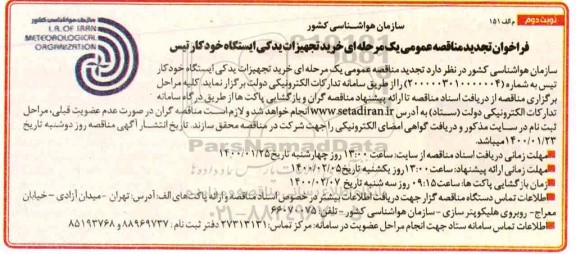 نوبت دوم
م الف ۱۵۱
سازمان هواشناسی کشور
I.R. OF IRAN
METEOROLOGICAL
ORGANIZATION
فراخوان تجدید مناقصه عمومی یک مرحله ای خرید تجهیزات یدکی ایستگاه خودکار تیس
سازمان هواشناسی کشور در نظر دارد تجدید مناقصه عمومی یک مرحله ای خرید تجهیزات یدکی ایستگاه خودکار
تیس به شماره (۲۰۰۰۰۰۳۰۱۰۰۰۰۰۰۴) را از طریق سامانه تدارکات الکترونیکی دولت برگزار نماید. کلیه مراحل
برگزاری مناقصه از دریافت اسناد مناقصه تا ارائه پیشنهاد مناقصه گران و بازگشایی پاکت ها از طریق درگاه سامانه
تدارکات الکترونیکی دولت (ستاد) به آدرس www.setadiran.ir انجام خواهد شد و لازم است مناقصه گران در صورت عدم عضویت قبلی، مراحل
ثبت نام در سایت مذکور و دریافت گواهی امضای الکترونیکی را جهت شرکت در مناقصه محقق سازند. تاریخ انتشار آگهی مناقصه روز دوشنبه تاریخ
۱۴۰۰/۰۱/۲۳ میباشد.
مهلت زمانی دریافت اسناد مناقصه از سایت: ساعت ۱۳:۰۰ روز چهارشنبه تاریخ ۱۴۰۰/۰۱/۲۵
مهلت زمانی ارائه پیشنهاد: ساعت ۱۳:۰۰ روز یکشنبه تاریخ ۱۴۰۰/۰۲/۰۵
زمان بازگشایی پاکت ها: ساعت ۰۹:۱۵ روز سه شنبه تاریخ ۱۴۰۰/۰۲/۰۷
اطلاعات تماس دستگاه مناقصه گزار جهت دریافت اطلاعات بیشتر در خصوص اسناد مناقصه و ارائه پاکت های الف: آدرس: تهران - میدان آزادی - خیابان
معراج- روبروی هلیکوپترسازی - سازمان هواشناسی کشور - تلفن: ۶۶۰۷۰۰۷۵
اطلاعات تماس سامانه ستاد جهت انجام مراحل عضویت در سامانه: مرکز تماس: ۲۷۳۱۳۱۳۱ دفتر ثبت نام: ۸۸۹۶۹۷۳۷ و ۸۵۱۹۳۷۶۸
ParsNamadData